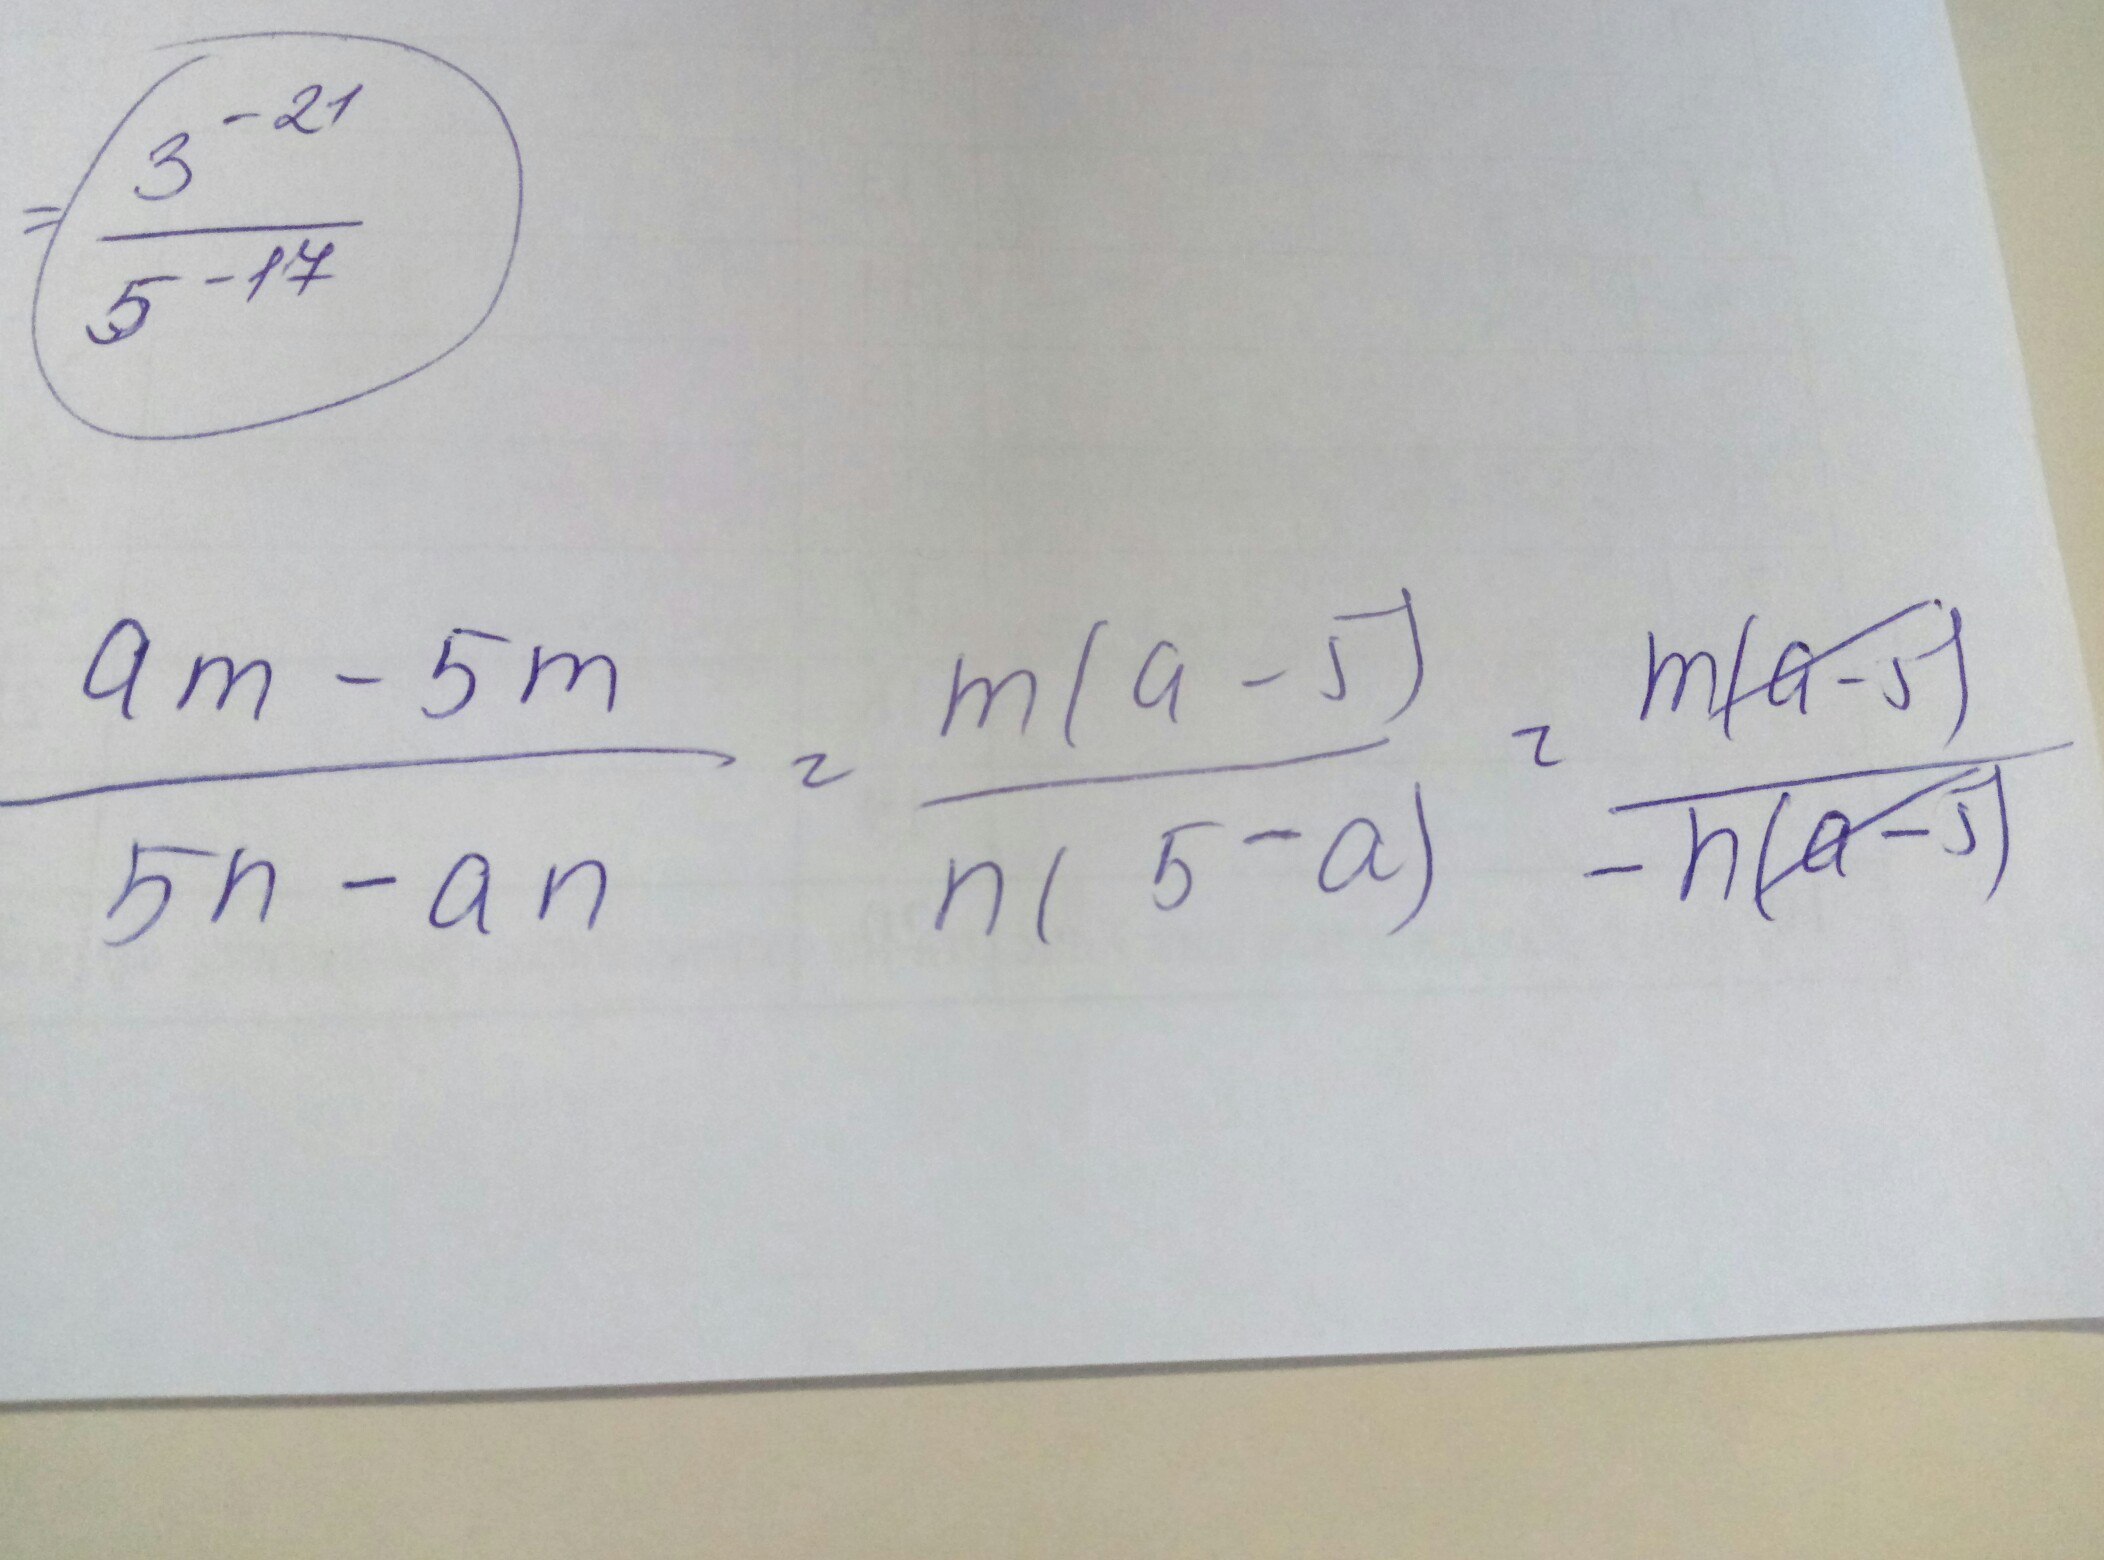 = 3^-21 / 5^-17
(am - 5m) / (5n - an) = m(a - 5) / n(5 - a) = m(a - 5) / -n(a - 5)